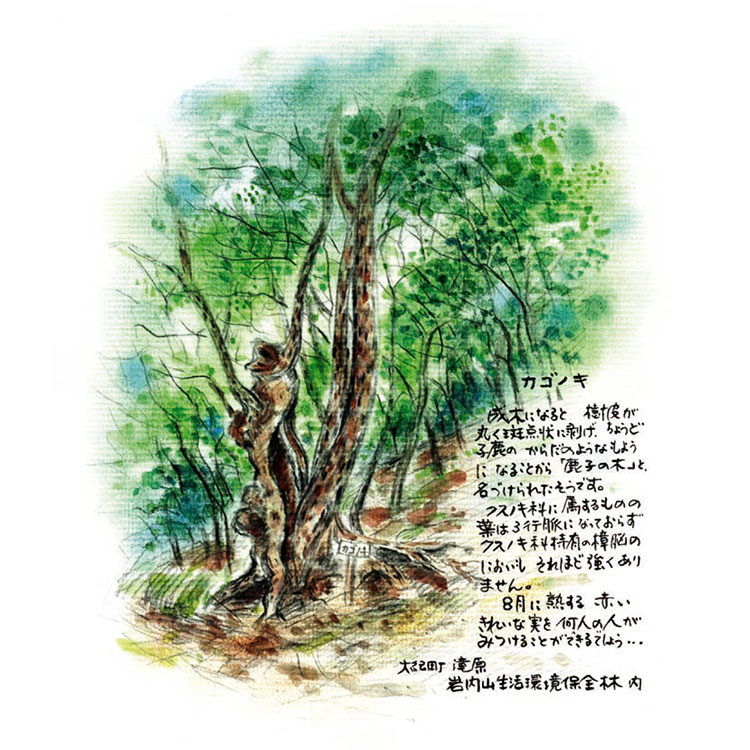 カゴノキ
成木になると 樹皮が
丸く斑点状に剥げ、ちょうど
子鹿の からだのようなもよう
に なることから「鹿子の木」と、
名づけられたそうです。
クスノキ科に属するものの
葉は3行脈になっておらず
クスノキ科特有の樟脳の
においも それほど強くあり
ません。
8月に熟する 赤い
きれいな実を何人の人が
みつけることができるでしょう...
カゴノキ
大紀町 滝原
岩内山生活環境保全林 内